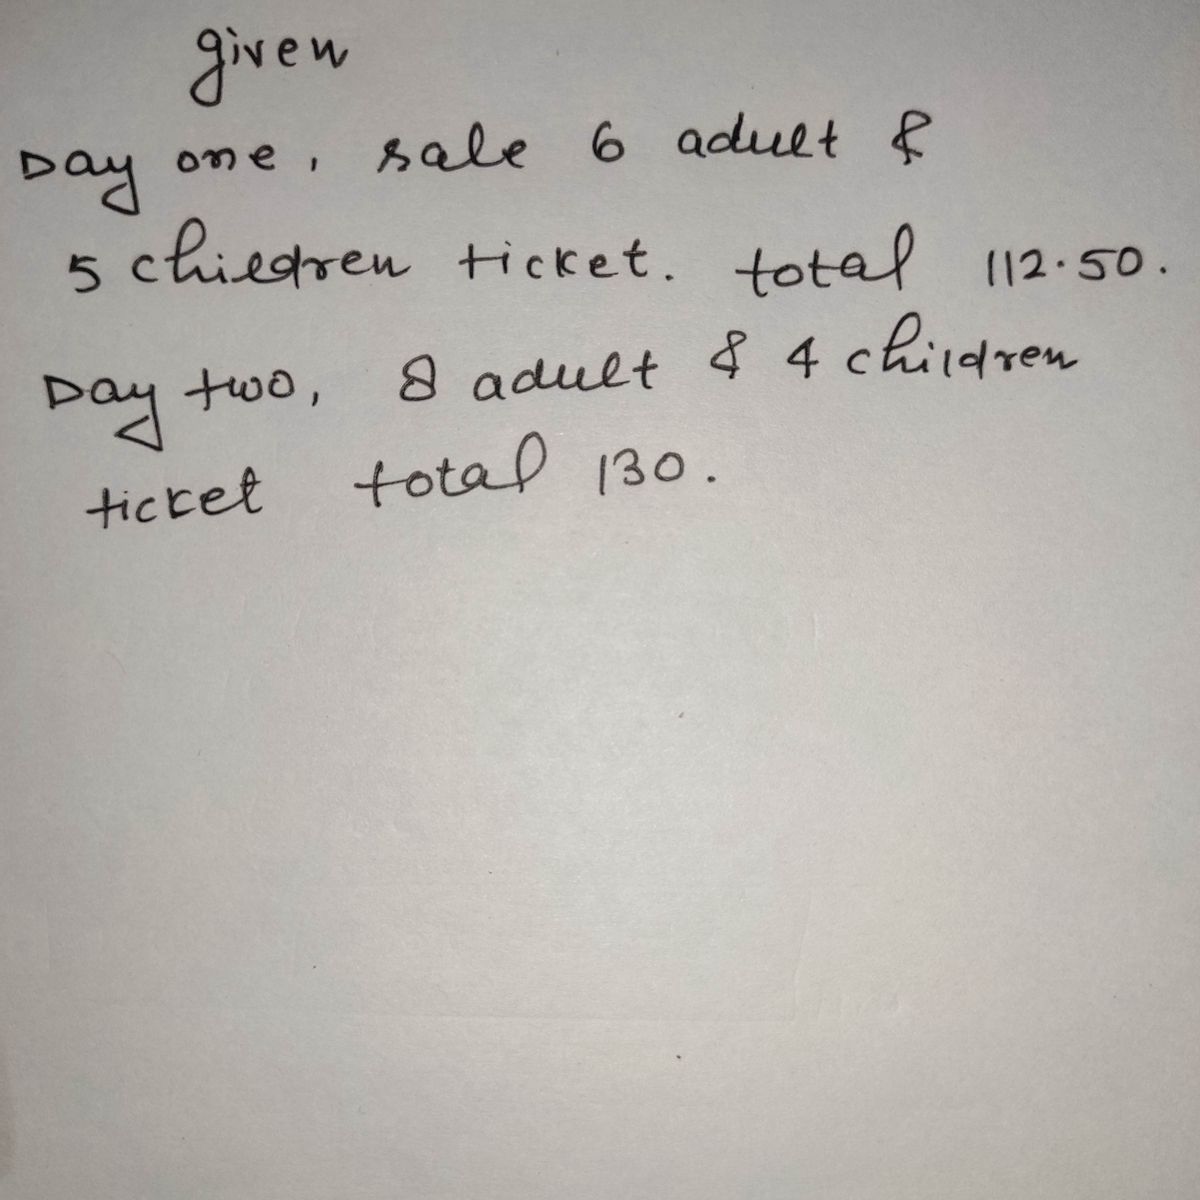 given
Day one, sale 6 adult &
5 children ticket. total 112.50.
Day two, 8 adult & 4 children
ticket total 130.